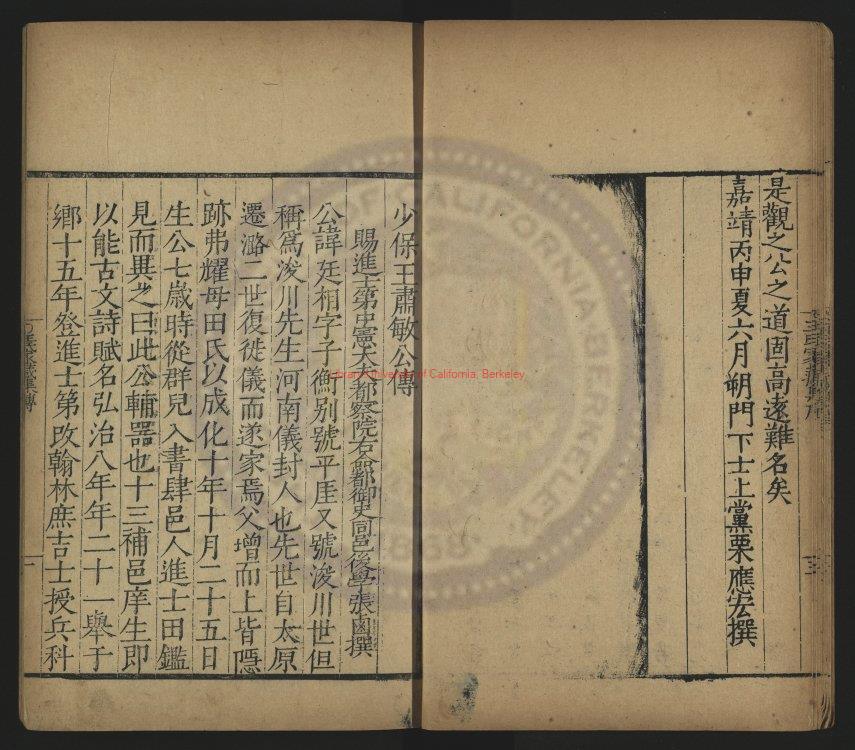 是觀之公之道固高遠難名矣
嘉靖丙申夏六月朔門下士上黨栗應宏撰
少保王肅敏公傳
賜進士第中憲大夫都察院右僉都御史同邑後學張鹵撰
公諱廷相字子衡别號平厓又號浚川世但
稱爲浚川先生河南儀封人也先世自太原
遷潞二世復徙儀而遂家焉父增而上皆隱
跡弗耀母田氏以成化十年十月二十五日
生公七歲時從群兒入書肆邑人進士田鑑
見而異之曰此公輔器也十三補邑庠生即
以能古文詩賦名弘治八年年二十一舉于
鄉十五年登進士第改翰林庶吉士授兵科
Library University of California, Berkeley